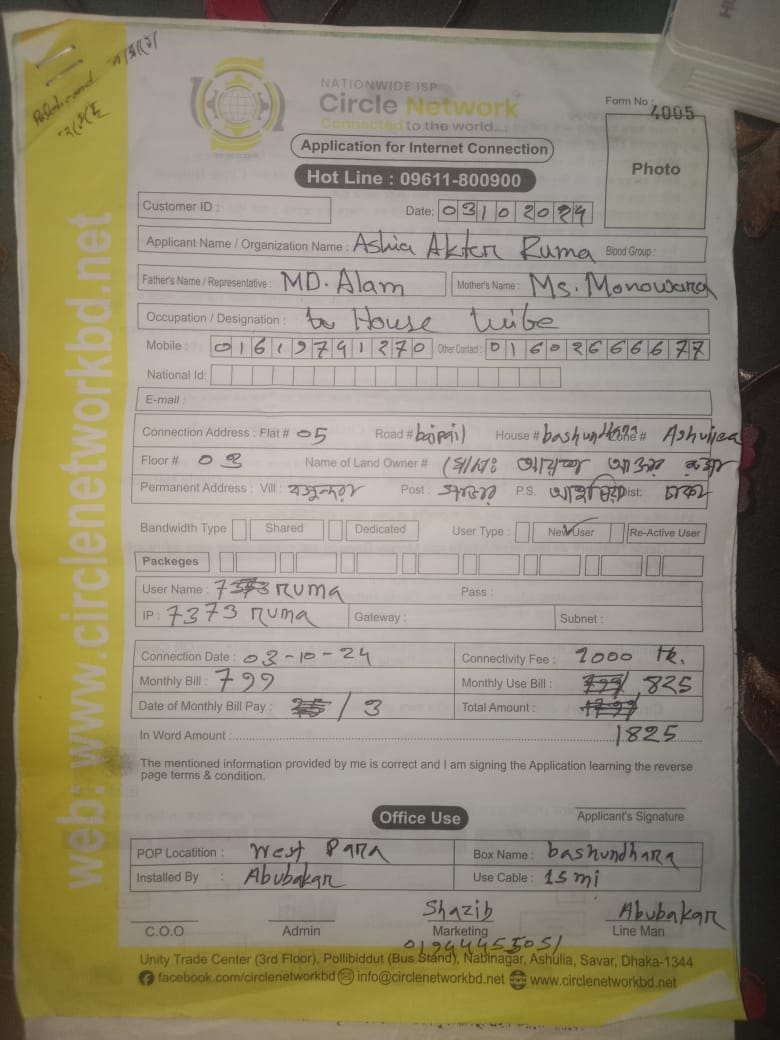 NATIONWIDE ISP
Circle Network
Connected to the world...
Form No : 4005
Application for Internet Connection
Photo
Hot Line : 09611-800900
Customer ID :
Date: 03102024
Applicant Name / Organization Name : Ashia Akter Ruma Blood Group :
Father's Name / Representative : MD. Alam Mother's Name : Ms. Monowara
Occupation / Designation : House
Mobile : 01619791270 Other Contact : 01602666677
National Id:
E-mail :
Connection Address : Flat # 05 Road # baipail House # bashundhara Zone # Ashulia
Floor # 03 Name of Land Owner # (মোসাঃ আয়শা আক্তার রুমা
Permanent Address : Vill : বসুন্ধরা Post : সাভার P.S. আশুলিয়া Dist: ঢাকা
Bandwidth Type Shared Dedicated User Type : New User Re-Active User
Packeges
User Name : 7373 Ruma Pass :
IP : 7373 Ruma Gateway : Subnet :
Connection Date : 03-10-24 Connectivity Fee : 1000 Tk.
Monthly Bill : 799 Monthly Use Bill : 799/ 825
Date of Monthly Bill Pay : / 3 Total Amount :
In Word Amount : 1825
The mentioned information provided by me is correct and I am signing the Application learning the reverse
page terms & condition.
Office Use
Applicant's Signature
POP Locatition : West Para Box Name : bashundhara
Installed By : Abubakar Use Cable : 15 mi
Shazib Abubakar
C.O.O Admin Marketing Line Man
01944455051
Unity Trade Center (3rd Floor), Pollibiddut (Bus Stand), Nabinagar, Ashulia, Savar, Dhaka-1344
facebook.com/circlenetworkbd info@circlenetworkbd.net www.circlenetworkbd.net
web: www.circlenetworkbd.net